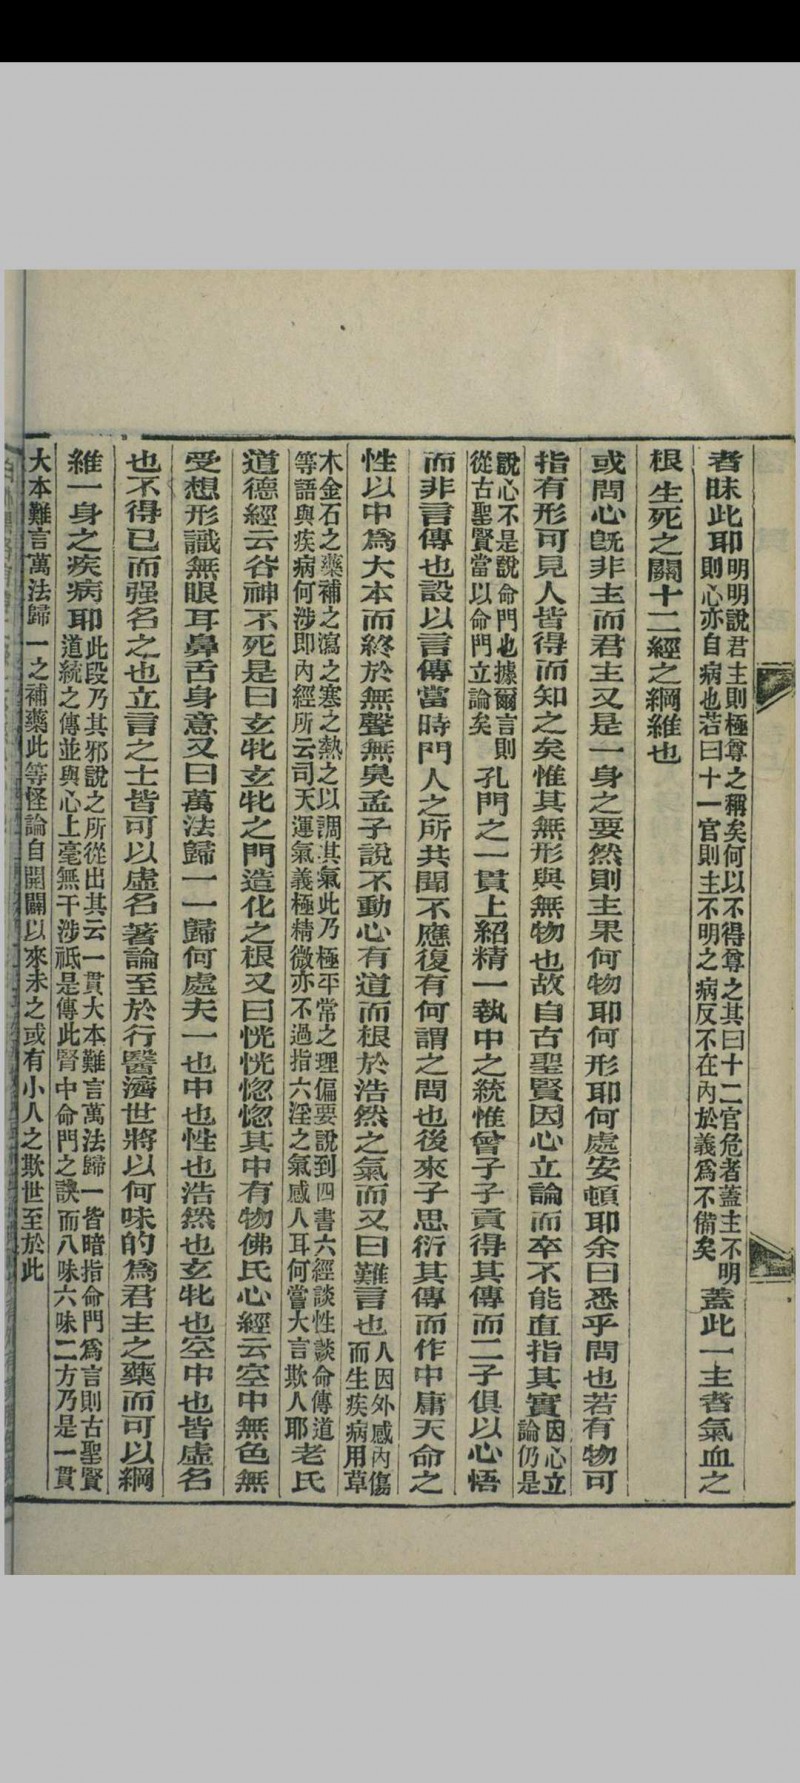 者昧此耶明明說君主則極尊之稱矣何以不得尊之其曰十二官危者蓋主不明則心亦自病也若曰十一官則主不明之病反不在內於義爲不備矣蓋此一主者氣血之
根生死之關十二經之綱維也
或問心旣非主而君主又是一身之要然則主果何物耶何形耶何處安頓耶余曰悉乎問也若有物可
指有形可見人皆得而知之矣惟其無形與無物也故自古聖賢因心立論而卒不能直指其實因心立論仍是
說心不是說命門也據爾言則從古聖賢當以命門立論矣孔門之一貫上紹精一執中之統惟曾子子貢得其傳而二子俱以心悟
而非言傳也設以言傳當時門人之所共聞不應復有何謂之問也後來子思衍其傳而作中庸天命之
性以中爲大本而終於無聲無臭孟子說不動心有道而根於浩然之氣而又曰難言也人因外感內傷而生疾病用草
木金石之藥補之瀉之寒之熱之以調其氣此乃極平常之理偏要說到四書六經談性談命傳道等語與疾病何涉即內經所云司天運氣義極精微亦不過指六淫之氣感人耳何嘗大言欺人耶老氏
道德經云谷神不死是曰玄牝玄牝之門造化之根又曰恍恍惚惚其中有物佛氏心經云空中無色無
受想形識無眼耳鼻舌身意又曰萬法歸一一歸何處夫一也中也性也浩然也玄牝也空中也皆虛名
也不得已而强名之也立言之士皆可以虛名著論至於行醫濟世將以何味的爲君主之藥而可以綱
維一身之疾病耶此段乃其邪說之所從出其云一貫大本難言萬法歸一皆暗指命門爲言則古聖賢道統之傳並與心上毫無干涉祗是傳此腎中命門之訣而八味六味二方乃是一貫
大本難言萬法歸一之補藥此等怪論自開闢以來未之或有小人之欺世至於此